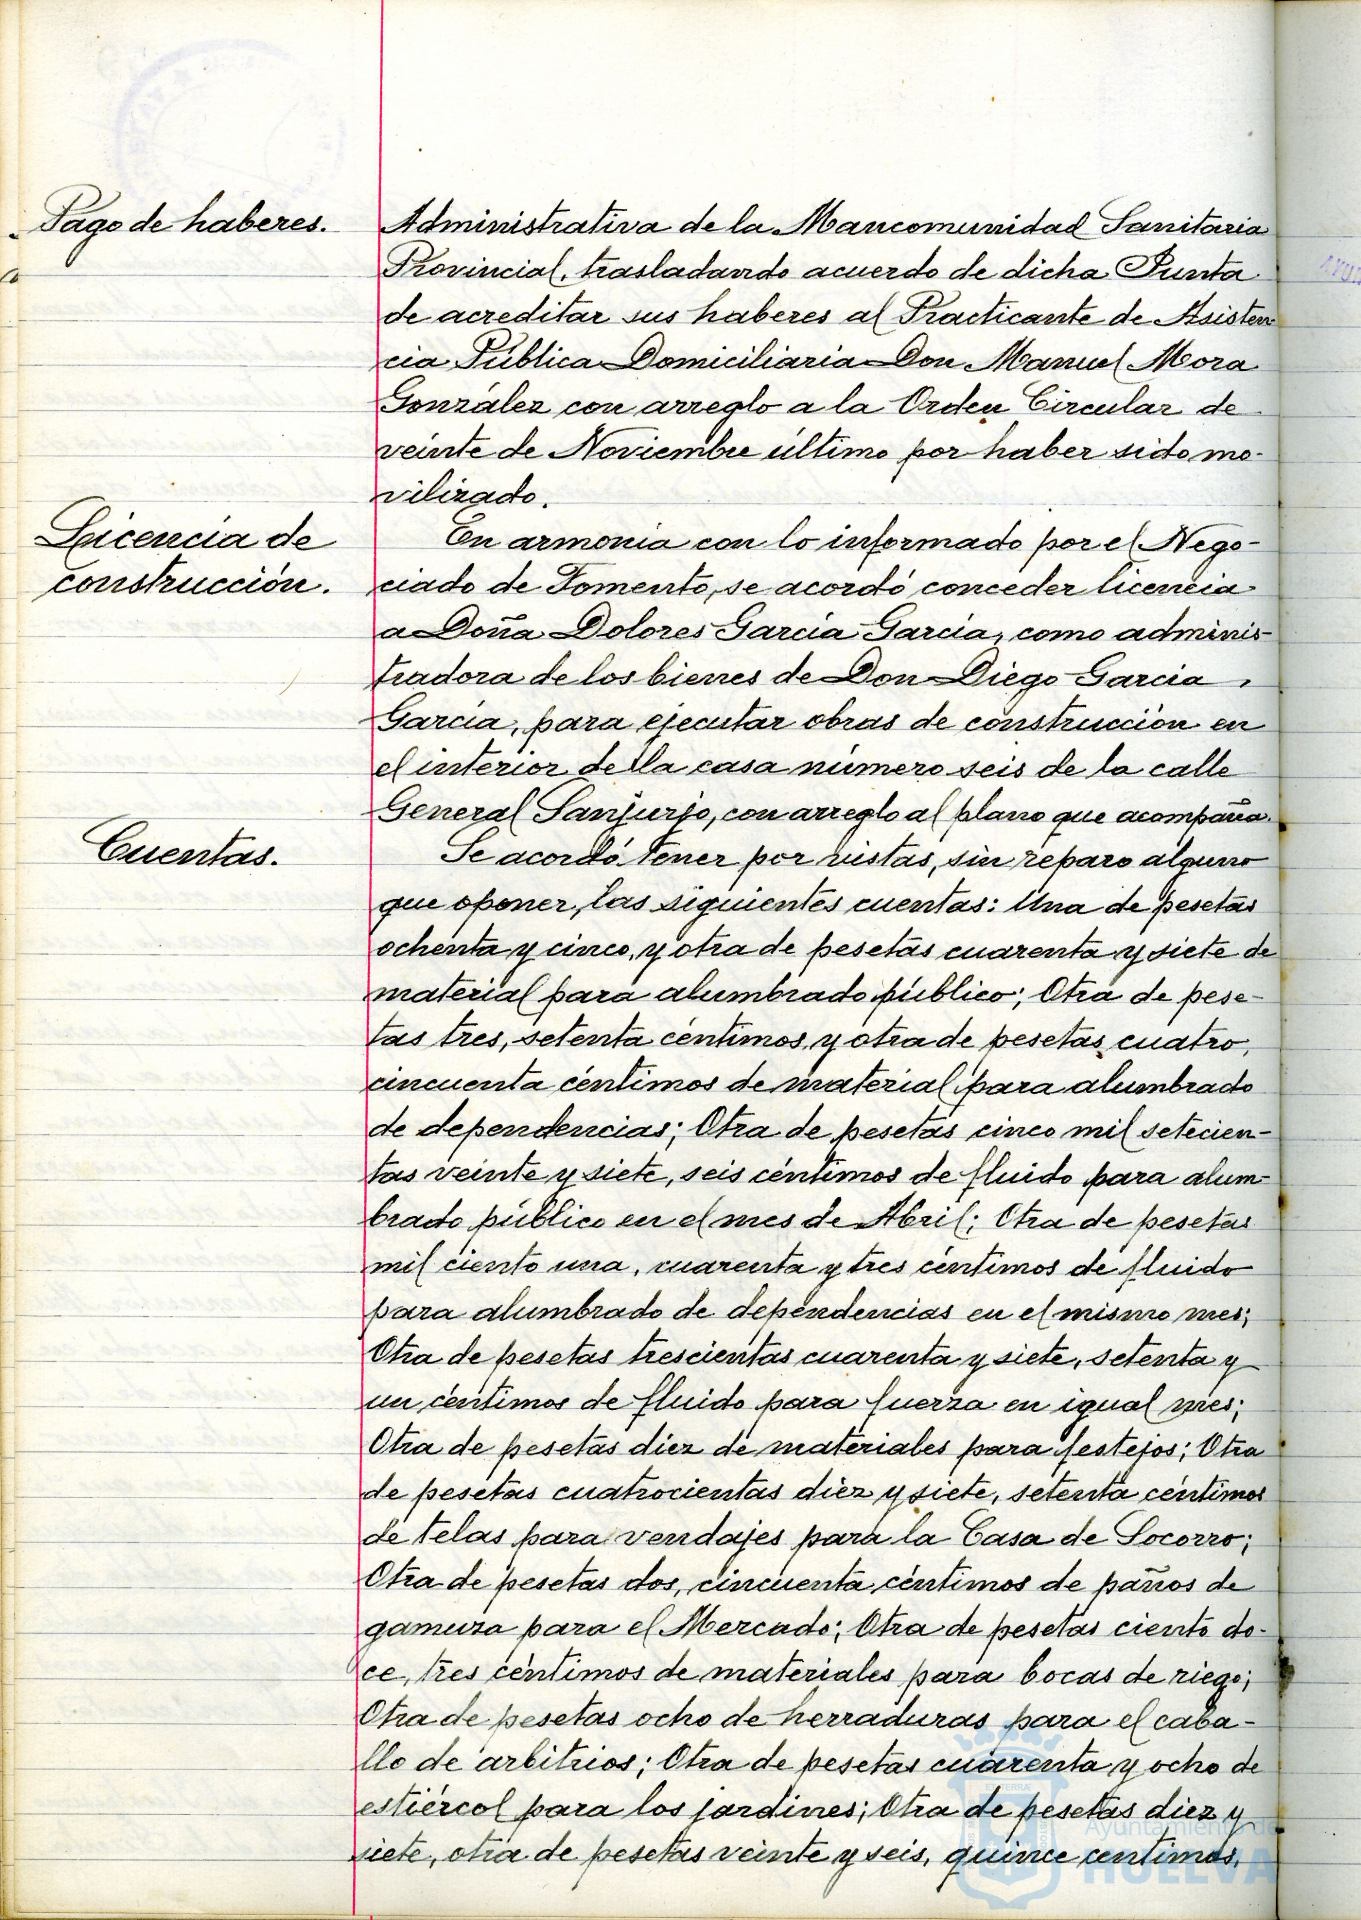 Pago de haberes.
Administrativa de la Mancomunidad Sanitaria
Provincial, trasladando acuerdo de dicha Junta
de acreditar sus haberes al Practicante de Asisten
cia Pública Domiciliaria Don Manuel Mora
González con arreglo a la Orden Circular de
veinte de Noviembre último por haber sido mo-
vilizado.
Licencia de
construcción.
En armonia con lo informado por el Nego-
ciado de Fomento, se acordó conceder licencia
a Doña Dolores Garcia Garcia, como adminis-
tradora de los bienes de Don Diego Garcia
Garcia, para ejecutar obras de construcción en
el interior de la casa número seis de la calle
General Sanjurjo, con arreglo al plano que acompaña.
Cuentas.
Se acordó tener por vistas, sin reparo alguno
que oponer, las siguientes cuentas: Una de pesetas
ochenta y cinco, y otra de pesetas cuarenta y siete de
material para alumbrado público; Otra de pese-
tas tres, setenta céntimos, y otra de pesetas cuatro,
cincuenta céntimos de material para alumbrado
de dependencias; Otra de pesetas cinco mil setecien-
tas veinte y siete, seis céntimos de fluido para alum-
brado público en el mes de Abril; Otra de pesetas
mil ciento una, cuarenta y tres céntimos de fluido
para alumbrado de dependencias en el mismo mes;
Otra de pesetas trescientas cuarenta y siete, setenta y
un céntimos de fluido para fuerza en igual mes;
Otra de pesetas diez de materiales para festejos; Otra
de pesetas cuatrocientas diez y siete, setenta céntimos
de telas para vendajes para la Casa de Socorro;
Otra de pesetas dos, cincuenta céntimos de paños de
gamuza para el Mercado; Otra de pesetas ciento do-
ce, tres céntimos de materiales para bocas de riego;
Otra de pesetas ocho de herraduras para el caba-
llo de arbitrios; Otra de pesetas cuarenta y ocho de
estiércol para los jardines; Otra de pesetas diez y
siete, otra de pesetas veinte y seis, quince centimos,
Ayuntamiento de
HUELVA